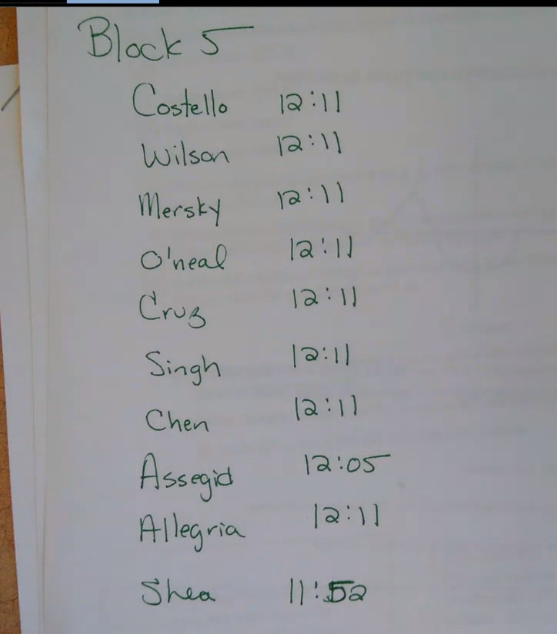 Block 5
Costello 12:11
Wilson 12:11
Mersky 12:11
O'neal 12:11
Cruz 12:11
Singh 12:11
Chen 12:11
Assegid 12:05
Allegria 12:11
Shea 11:52